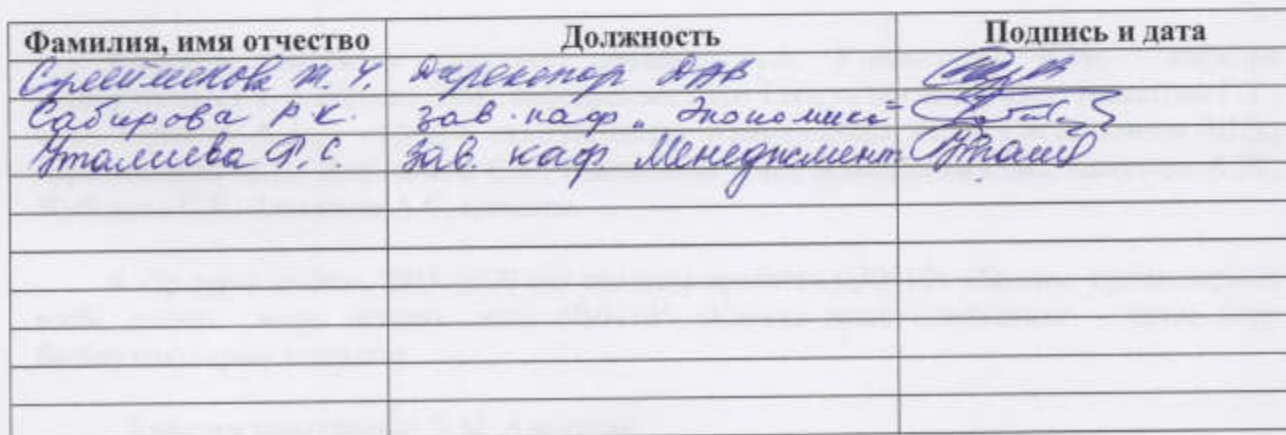 Фамилия, имя отчество Должность Подпись и дата
Сулейменова Ж. У. Директор ДАВ
Сабирова Р К. зав. каф „Экономика"
Уталиева Р. С. зав. каф. Менеджмент